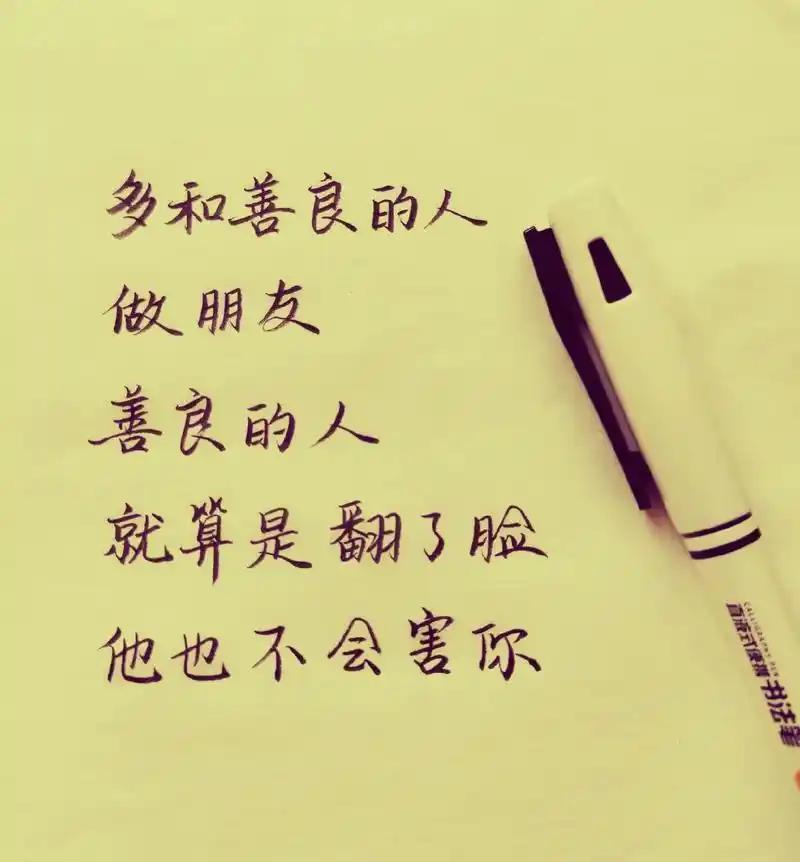 多和善良的人
做朋友
善良的人
就算是翻了脸
他也不会害你
CALLIGRAPHY PEN
直液式便携书法笔